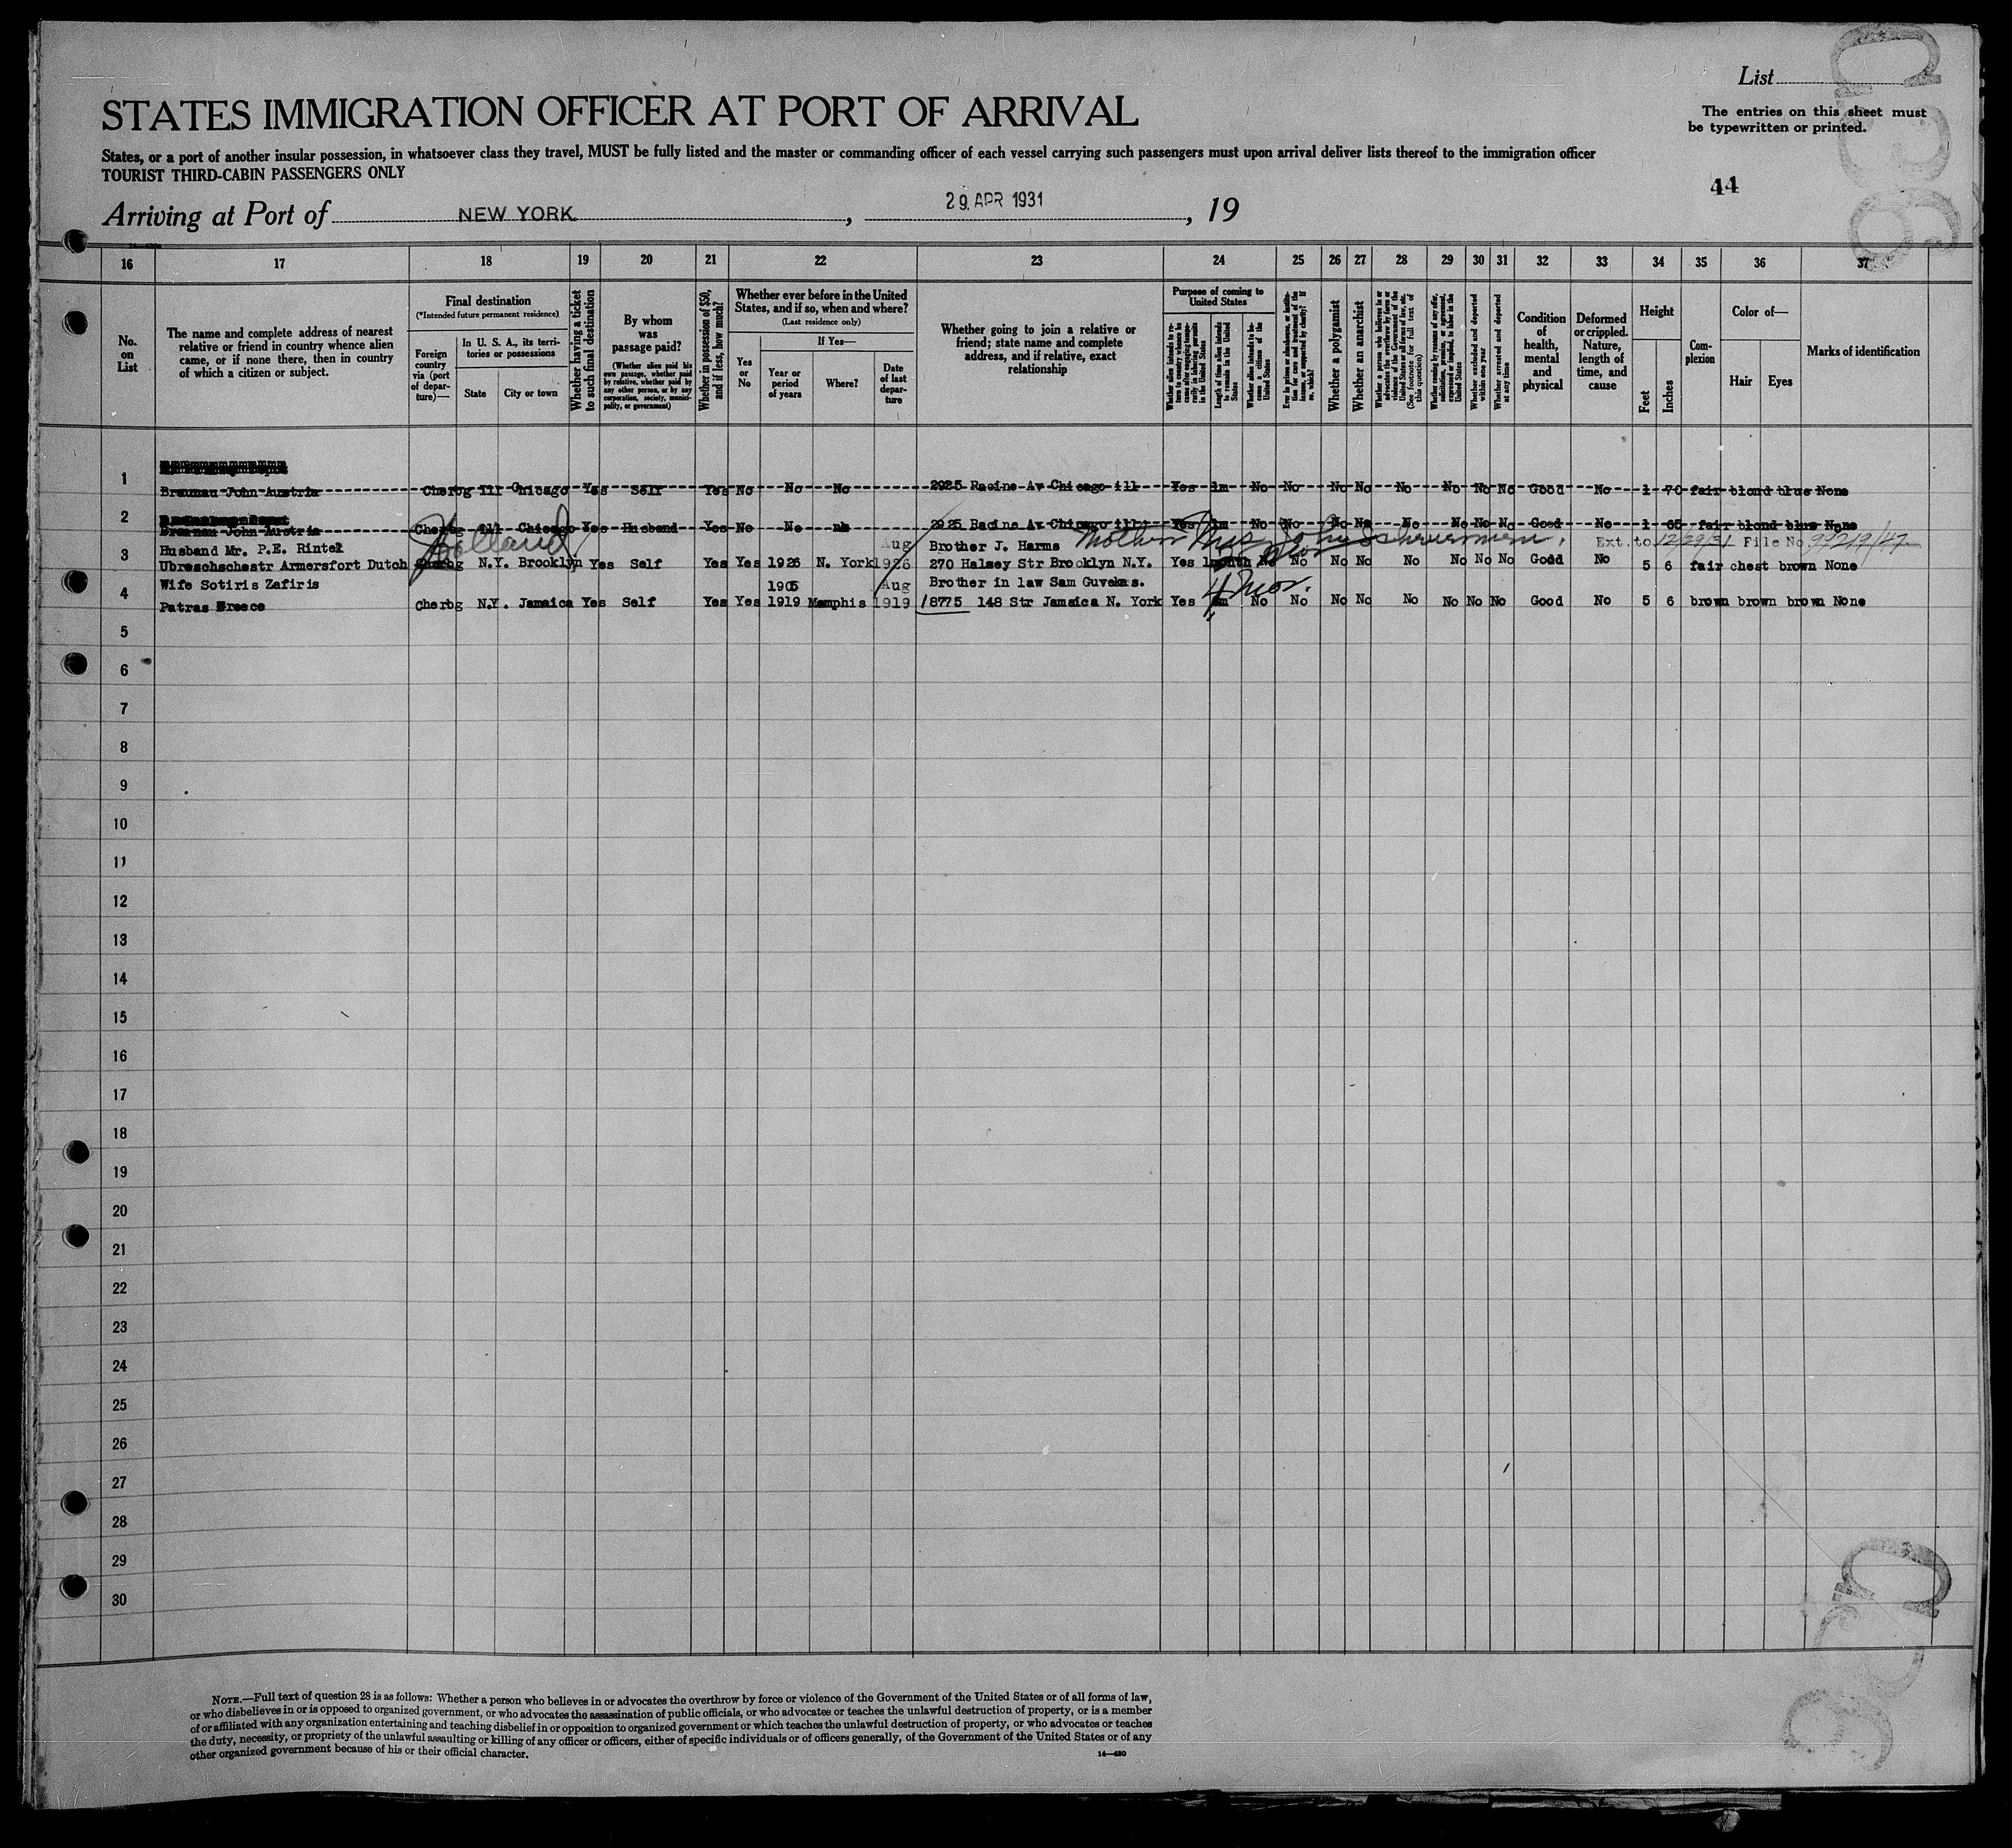 List
STATES IMMIGRATION OFFICER AT PORT OF ARRIVAL
The entries on this sheet must
be typewritten or printed.
States, or a port of another insular possession, in whatsoever class they travel, MUST be fully listed and the master or commanding officer of each vessel carrying such passengers must upon arrival deliver lists thereof to the immigration officer
TOURIST THIRD-CABIN PASSENGERS ONLY
44
Arriving at Port of NEW YORK, 29 APR 1931, 19
16 17 18 19 20 21 22 23 24 25 26 27 28 29 30 31 32 33 34 35 36 37
No. on List
The name and complete address of nearest relative or friend in country whence alien came, or if none there, then in country of which a citizen or subject.
Final destination
(*Intended future permanent residence)
Foreign country via (port of departure)—
In U. S. A., its territories or possessions
State
City or town
Whether having a ticket to such final destination
By whom was passage paid?
(Whether alien paid his own passage, whether paid by relative, whether paid by any other person, or by any corporation, society, municipality, or government)
Whether in possession of $50, and if less, how much?
Whether ever before in the United States, and if so, when and where?
(Last residence only)
Yes or No
If Yes—
Year or period of years
Where?
Date of last departure
Whether going to join a relative or friend; state name and complete address, and if relative, exact relationship
Purpose of coming to United States
Length of time alien intends to remain in the United States
Whether alien intends to become a citizen of the United States
Whether a polygamist
Whether an anarchist
(See footnote for full text of this question)
Whether arrested and deported at any time
Condition of health, mental and physical
Deformed or crippled. Nature, length of time, and cause
Height
Feet
Inches
Complexion
Color of—
Hair
Eyes
Marks of identification
1 Braunau John Austria Cherbg Ill Chicago Yes Self Yes No No No 2925 Racine Av Chicago ill Yes 1m No No No No No No No No Good No 1 70 fair blond blue None
2 John Austria Cherbg Ill Chicago Yes Husband Yes No No 2925 Racine Av Chicago ill Yes 1m No No No No No No No No Good No 1 65 fair blond blue None
Holland
Mother Mrs
3 Husband Mr. P.E. Rintel Aug Brother J. Harms Ext. to 12/29/31 File No. 99219/47
Ubreschschestr Armersfort Dutch Cherbg N.Y. Brooklyn Yes Self Yes Yes 1926 N. York 1926 270 Halsey Str Brooklyn N.Y. Yes 1month No No No No No No No No Godd No 5 6 fair chest brown None
4 Wife Sotiris Zafiris 1905 Aug Brother in law Sam Guvekas. 4 Mos.
Patras Greece Cherbg N.Y. Jamaica Yes Self Yes Yes 1919 Memphis 1919 8775 148 Str Jamaica N. York Yes No No No No No No No No Good No 5 6 brown brown brown None
5
6
7
8
9
10
11
12
13
14
15
16
17
18
19
20
21
22
23
24
25
26
27
28
29
30
NOTE.—Full text of question 28 is as follows: Whether a person who believes in or advocates the overthrow by force or violence of the Government of the United States or of all forms of law,
or who disbelieves in or is opposed to organized government, or who advocates the assassination of public officials, or who advocates or teaches the unlawful destruction of property, or is a member
of or affiliated with any organization entertaining and teaching disbelief in or opposition to organized government or which teaches the unlawful destruction of property, or who advocates or teaches
the duty, necessity, or propriety of the unlawful assaulting or killing of any officer or officers, either of specific individuals or of officers generally, of the Government of the United States or of any
other organized government because of his or their official character.
14—480